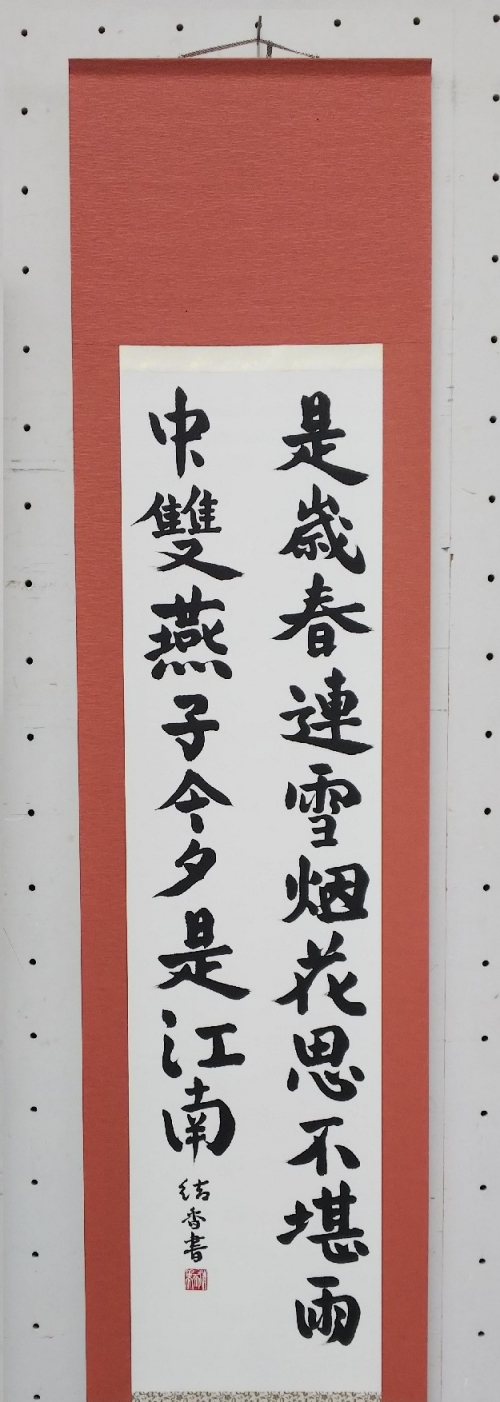 是歲春連雪烟花思不堪雨
中雙燕子今夕是江南
結香書